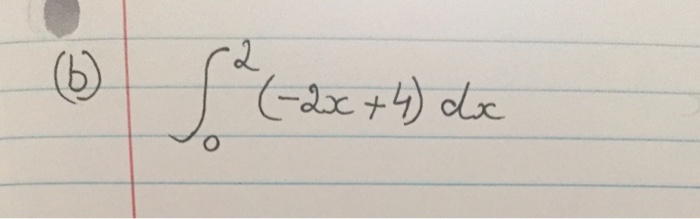 (b) ∫₀² (-2x + 4) dx